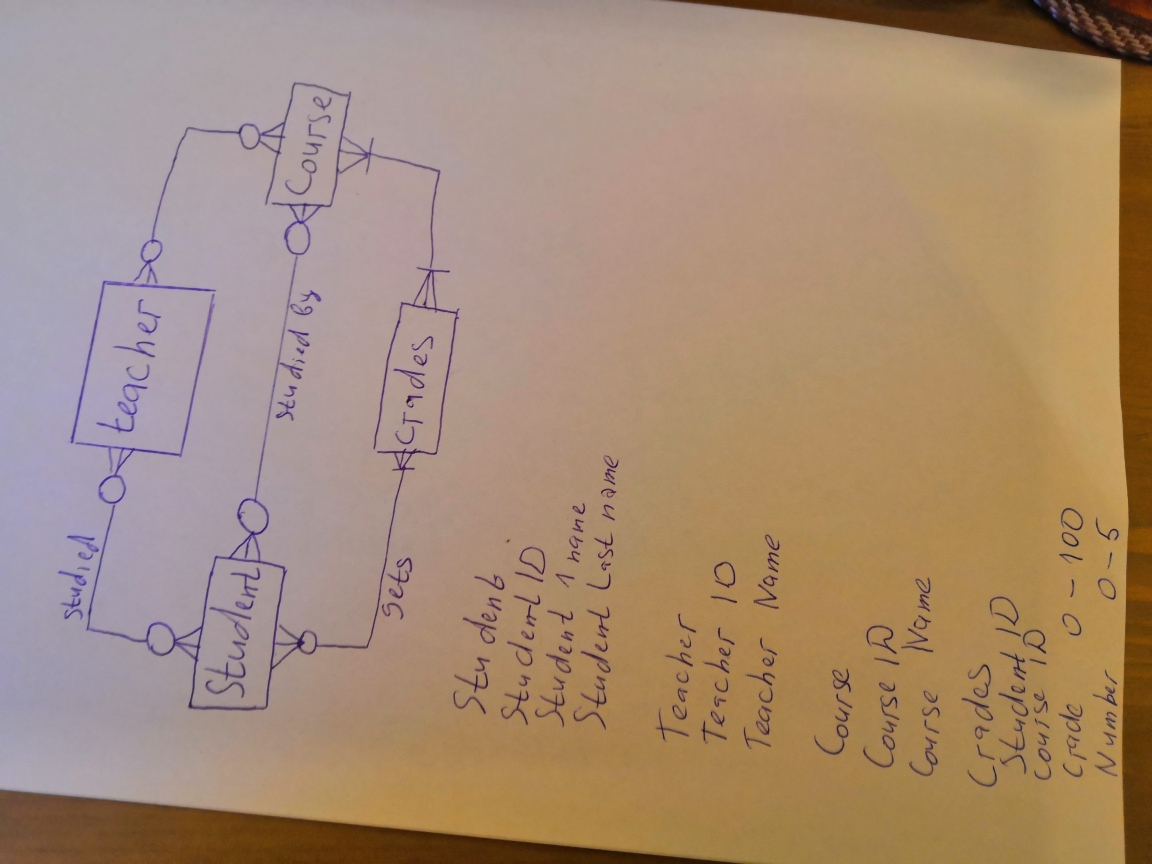 studied
teacher
Student
studied by
Course
gets
Grades
Student
Student ID
Student 1 name
Student Last name
Teacher
Teacher ID
Teacher Name
Course
Course ID
Course Name
Grades
Student ID
Course ID
Grade 0 - 100
Number 0 - 5